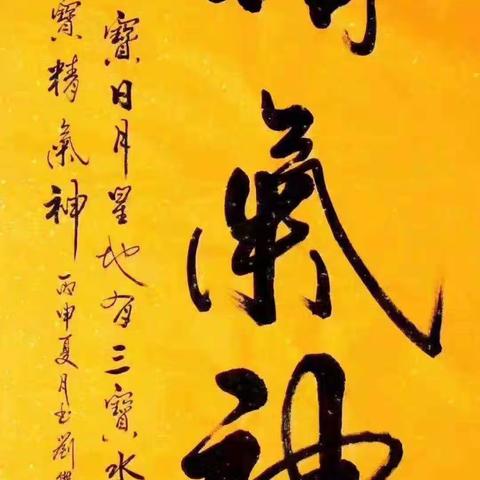 精氣神
寶日月星地有三寶水
寶精氣神
丙申夏月書劉